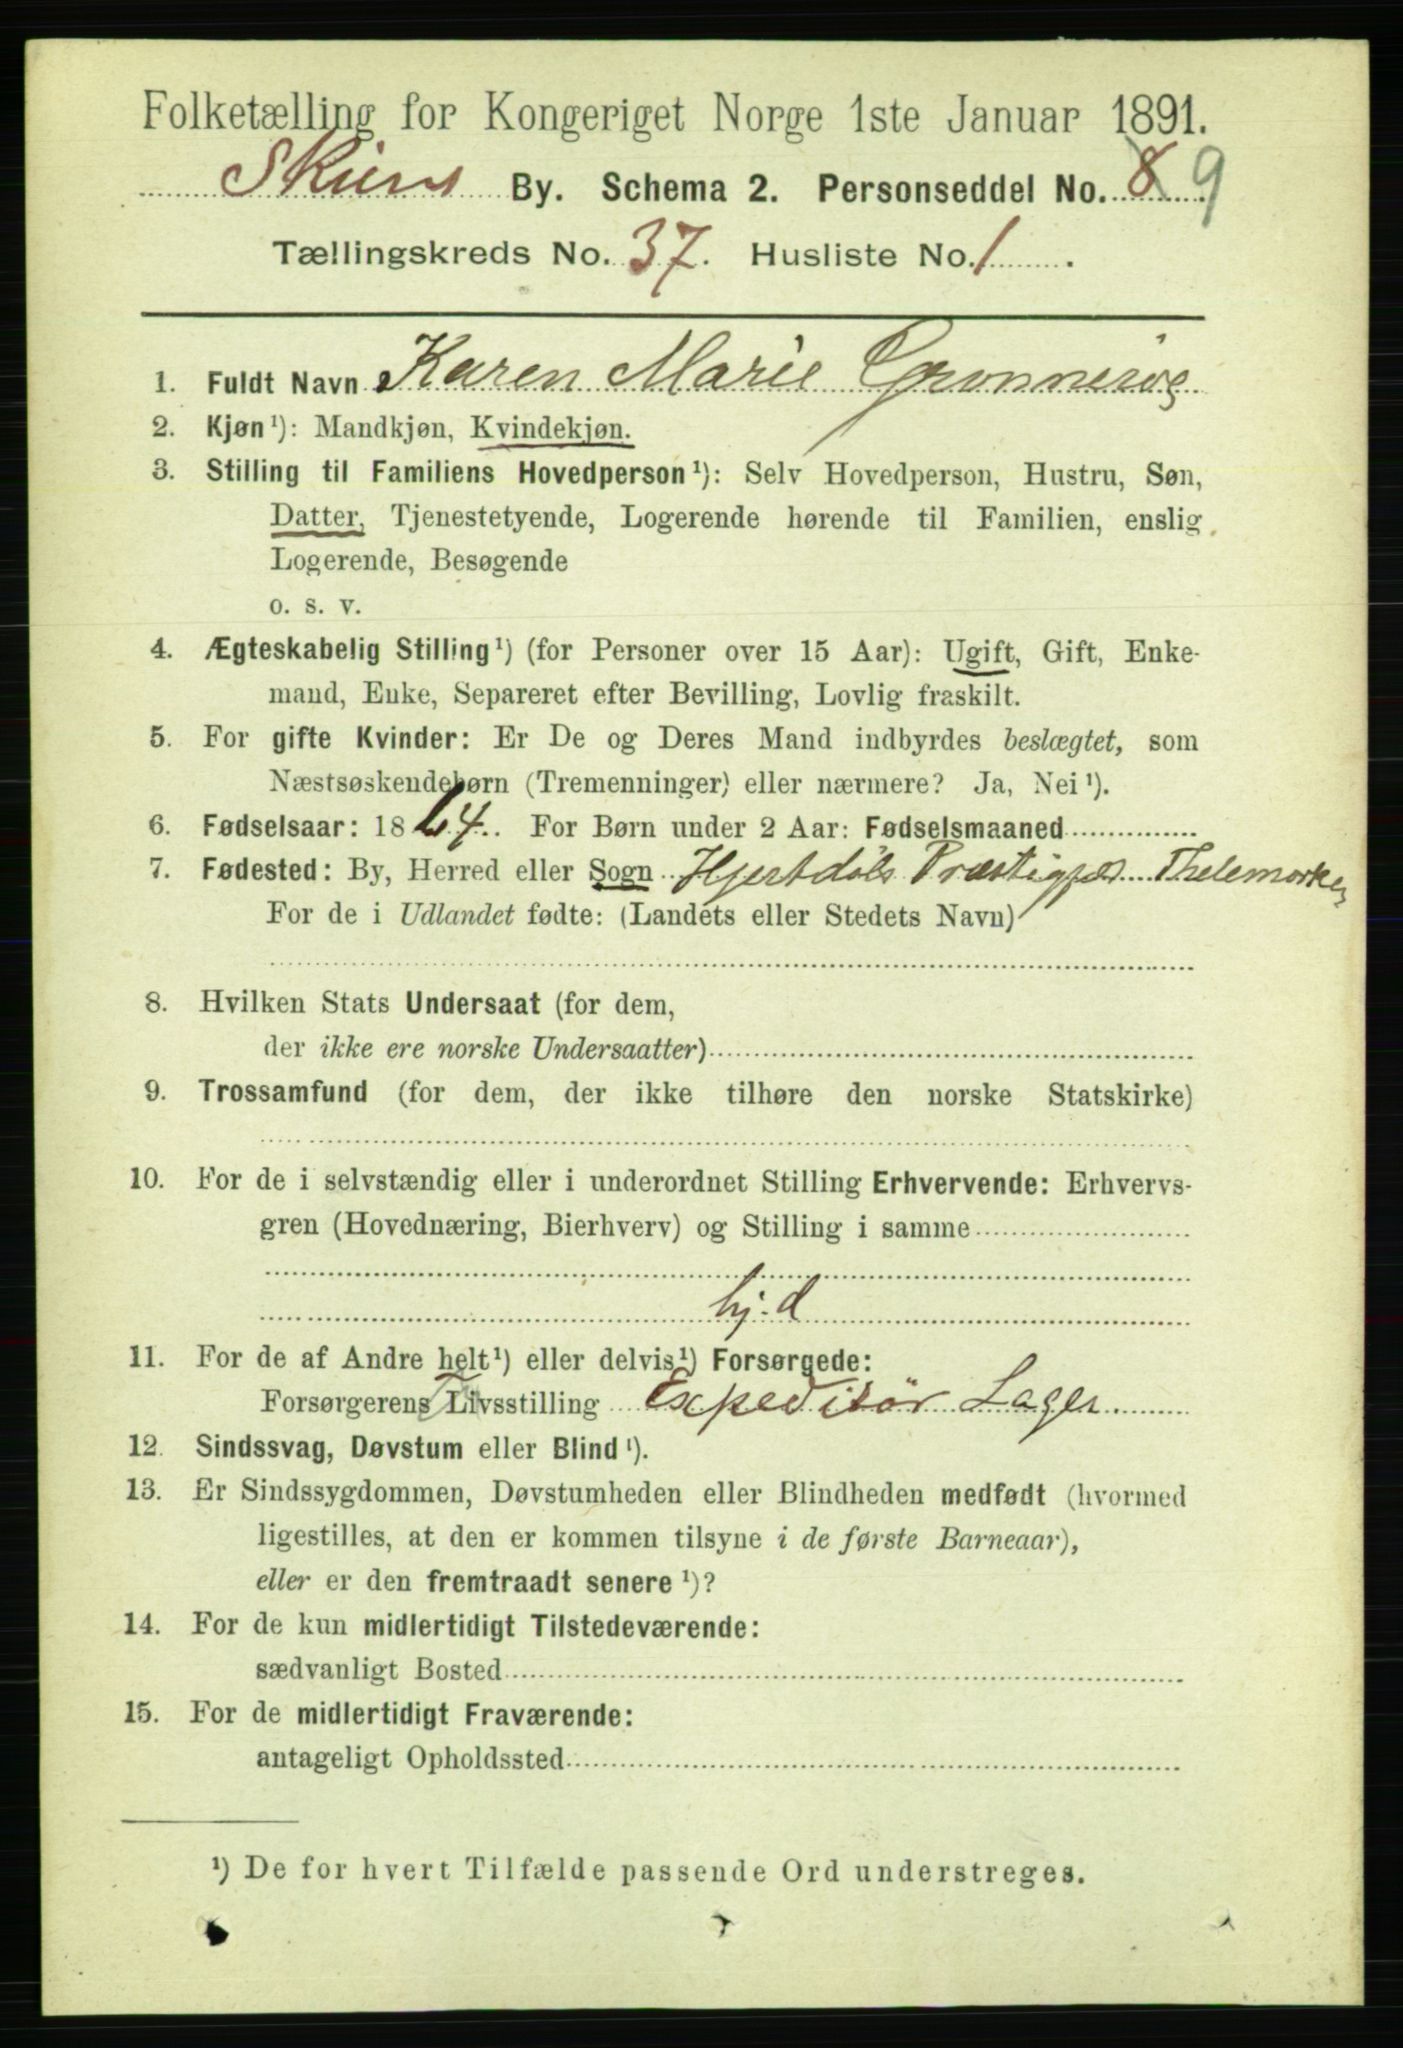 Folketælling for Kongeriget Norge 1ste Januar 1891.
Skiens By. Schema 2. Personseddel No. 8 9
Tællingskreds No. 37. Husliste No. 1.
1. Fuldt Navn Karen Marie Grønnerøg
2. Kjøn¹): Mandkjøn, Kvindekjøn.
3. Stilling til Familiens Hovedperson¹): Selv Hovedperson, Hustru, Søn,
Datter, Tjenestetyende, Logerende hørende til Familien, enslig
Logerende, Besøgende
o. s. v.
4. Ægteskabelig Stilling¹) (for Personer over 15 Aar): Ugift, Gift, Enke-
mand, Enke, Separeret efter Bevilling, Lovlig fraskilt.
5. For gifte Kvinder: Er De og Deres Mand indbyrdes beslægtet, som
Næstsøskendebørn (Tremenninger) eller nærmere? Ja, Nei¹).
6. Fødselsaar: 1864. For Børn under 2 Aar: Fødselsmaaned
7. Fødested: By, Herred eller Sogn Hjertdøls Præstigjæl Thelemarken
For de i Udlandet fødte: (Landets eller Stedets Navn)
8. Hvilken Stats Undersaat (for dem,
der ikke ere norske Undersaatter)
9. Trossamfund (for dem, der ikke tilhøre den norske Statskirke)
10. For de i selvstændig eller i underordnet Stilling Erhvervende: Erhvervs-
gren (Hovednæring, Bierhverv) og Stilling i samme
hj.d
11. For de af Andre helt¹) eller delvis¹) Forsørgede:
Forsørgerens Livsstilling Expeditør Lager
12. Sindssvag, Døvstum eller Blind¹).
13. Er Sindssygdommen, Døvstumheden eller Blindheden medfødt (hvormed
ligestilles, at den er kommen tilsyne i de første Barneaar),
eller er den fremtraadt senere¹)?
14. For de kun midlertidigt Tilstedeværende:
sædvanligt Bosted
15. For de midlertidigt Fraværende:
antageligt Opholdssted
¹) De for hvert Tilfælde passende Ord understreges.